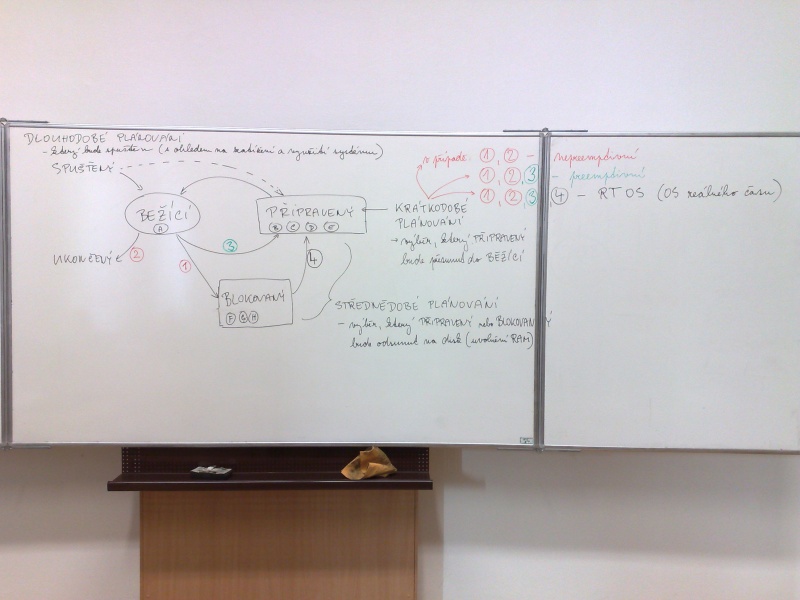 DLOUHODOBÉ PLÁNOVÁNÍ
- který bude spuštěn (s ohledem na zatížení a využití systému)
SPUŠTĚNÝ
BĚŽÍCÍ
A
PŘIPRAVENÝ
B C D E
UKONČENÝ
2
1
3
4
BLOKOVANÝ
F G H
v případě: 1, 2 - nepreemptivní
1, 2, 3 - preemptivní
1, 2, 3, 4 - RTOS (OS reálného času)
KRÁTKODOBÉ
PLÁNOVÁNÍ
→ výběr, který PŘIPRAVENÝ
bude přesunut do BĚŽÍCÍ
STŘEDNĚDOBÉ PLÁNOVÁNÍ
- výběr, který PŘIPRAVENÝ nebo BLOKOVANÝ
bude odsunut na disk (uvolnění RAM)